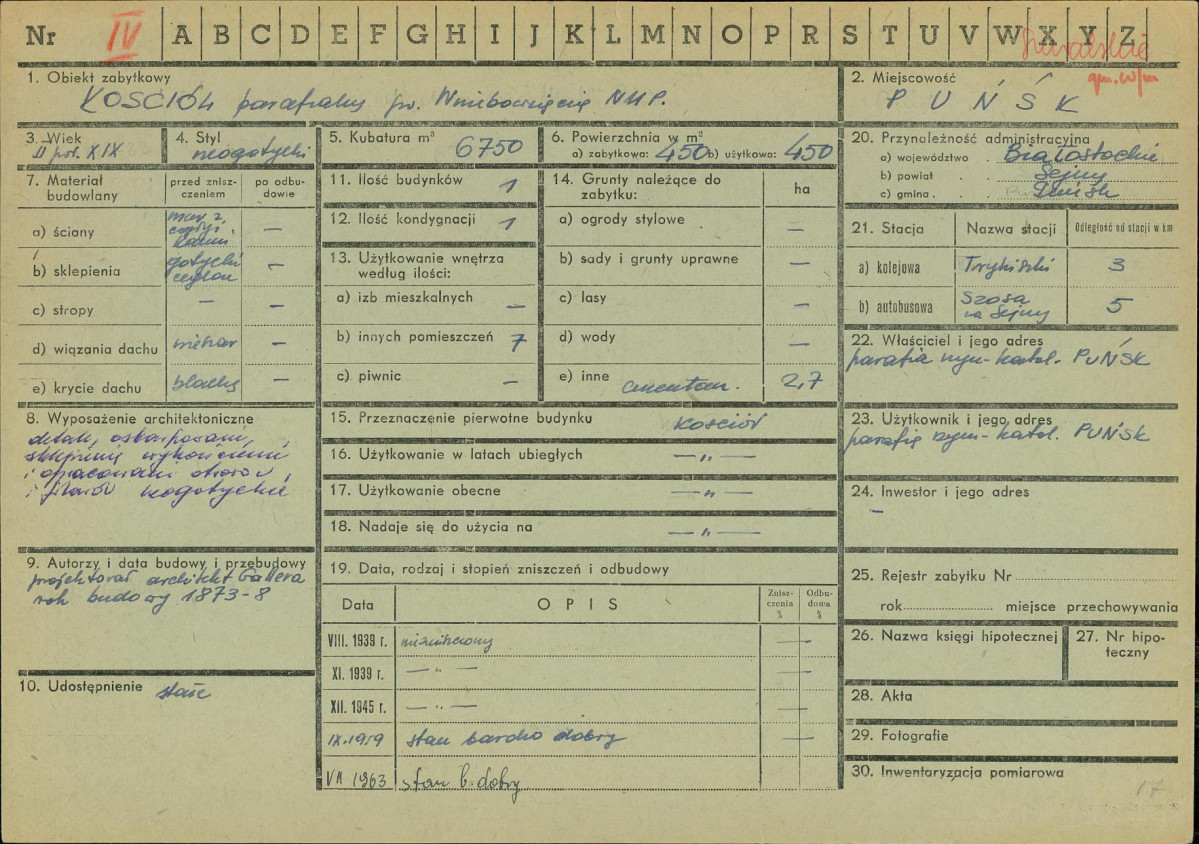 Nr IV A B C D E F G H I J K L M N O P R S T U V W X Y Z
Suwalskie
gm. w/m
1. Obiekt zabytkowy
KOŚCIÓŁ parafialny pw. Wniebowzięcia NMP.
2. Miejscowość
PUŃSK
3. Wiek
II poł. XIX
4. Styl
neogotycki
5. Kubatura m³ 6750
6. Powierzchnia w m²
a) zabytkowa: 450 b) użytkowa: 450
20. Przynależność administracyjna
a) województwo . Białostockie
b) powiat . . Sejny
c) gmina . . Puńsk
7. Materiał budowlany
przed zniszczeniem
po odbudowie
a) ściany mur z cegły i kamie. —
b) sklepienia gotycki ceglan —
c) stropy — —
d) wiązania dachu —
e) krycie dachu blachy —
11. Ilość budynków 1
12. Ilość kondygnacji 1
13. Użytkowanie wnętrza
według ilości:
a) izb mieszkalnych —
b) innych pomieszczeń 7
c) piwnic —
14. Grunty należące do
zabytku:
ha
a) ogrody stylowe —
b) sady i grunty uprawne —
c) lasy —
d) wody —
e) inne cmentarz. 2,7
21. Stacja
Nazwa stacji
Odległość od stacji w km
a) kolejowa Trykiszki 3
b) autobusowa Szosa na Sejny 5
22. Właściciel i jego adres
parafia rzym-katol. PUŃSK
8. Wyposażenie architektoniczne
detale, oskarpowani,
sklepienie wykończeni
i opracowani otworów
i filarów neogotyckie
15. Przeznaczenie pierwotne budynku kościół
16. Użytkowanie w latach ubiegłych — „ —
17. Użytkowanie obecne — „ —
18. Nadaje się do użycia na — „ —
23. Użytkownik i jego adres
parafia rzym-katol. PUŃSK
24. Inwestor i jego adres
—
9. Autorzy i data budowy i przebudowy
projektował architekt Gallera
rok budowy 1873-8
19. Data, rodzaj i stopień zniszczeń i odbudowy
Data
OPIS
Zniszczenia %
Odbudowa %
VIII. 1939 r. niezniszczony —
XI. 1939 r. — „ — —
XII. 1945 r. — „ — —
IX.1959 stan bardzo dobry —
VII 1963 stan b. dobry
10. Udostępnienie stałe
25. Rejestr zabytku Nr
rok miejsce przechowywania
26. Nazwa księgi hipotecznej
27. Nr hipoteczny
28. Akta
29. Fotografie
30. Inwentaryzacja pomiarowa
17